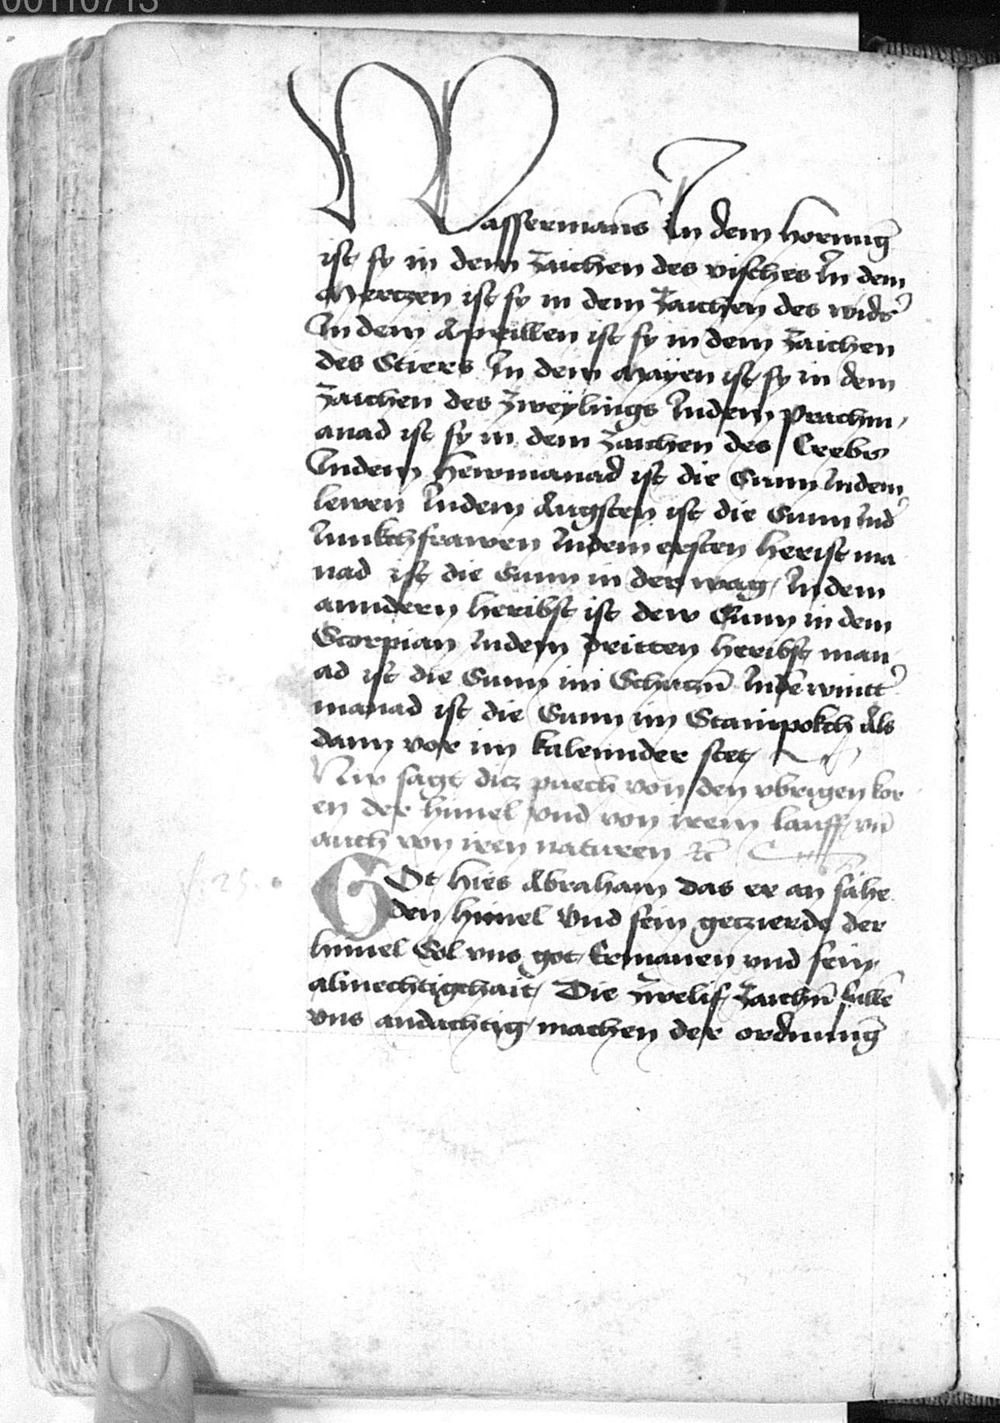 00110713
Wassermans In dem hornung
ist sy in dem zaichen des visches In dem
Mertzen ist sy in dem zaichen des wider
In dem Aprillen ist sy in dem zaichen
des Stiers In dem Mayen ist sy in dem
zaichen des zweylings In dem prachm
anad ist sy in dem zaichen des Crebs
In dem Hewmanad ist die Sunn In dem
lewen In dem Augsten ist die Sunn Ind
Junkchfrawen In dem ersten herist ma
nad ist die Sunn in der wag In dem
anndern heribst ist dew Sunn in dem
Scorpian In dem dritten heribst man
ad ist die Sunn im Schützn̄ In dē wintt
manad ist die Sunn im Stainpokch Als
dann vor im kalennder stet
Nw sagt ditz puech von den vbrigen kor
en der himel vnd von irem lauff vn̄
auch von iren naturen ꝛc̄
GOt hies Abraham das er an sähe
den himel Vnd sein getzierde der
himel Sol vns got Ermanen vnd sein
almechtigchait Die zwelif zaichn̄ sullē
vns andachtig machen der ordnung